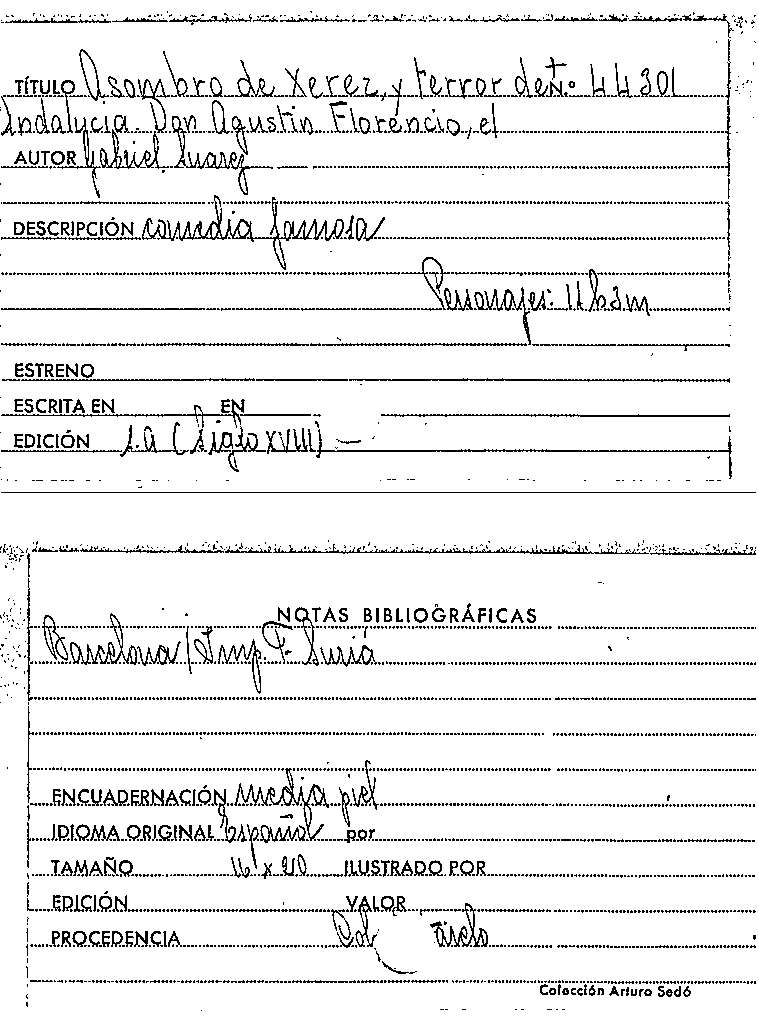 TÍTULO Asombro de Xerez, y terror de N.º 44301
Andalucia. Don Agustin Florencio, el
AUTOR Gabriel Suarez
DESCRIPCIÓN comedia famosa
Personajes: 11 h 3 m
ESTRENO
ESCRITA EN EN
EDICIÓN S.a (Siglo XVIII) —
NOTAS BIBLIOGRÁFICAS
Barcelona / Imp. F. Suriá
ENCUADERNACIÓN media piel
IDIOMA ORIGINAL Español por
TAMAÑO 16 x 20 ILUSTRADO POR
EDICIÓN VALOR
PROCEDENCIA
Colección Arturo Sedó